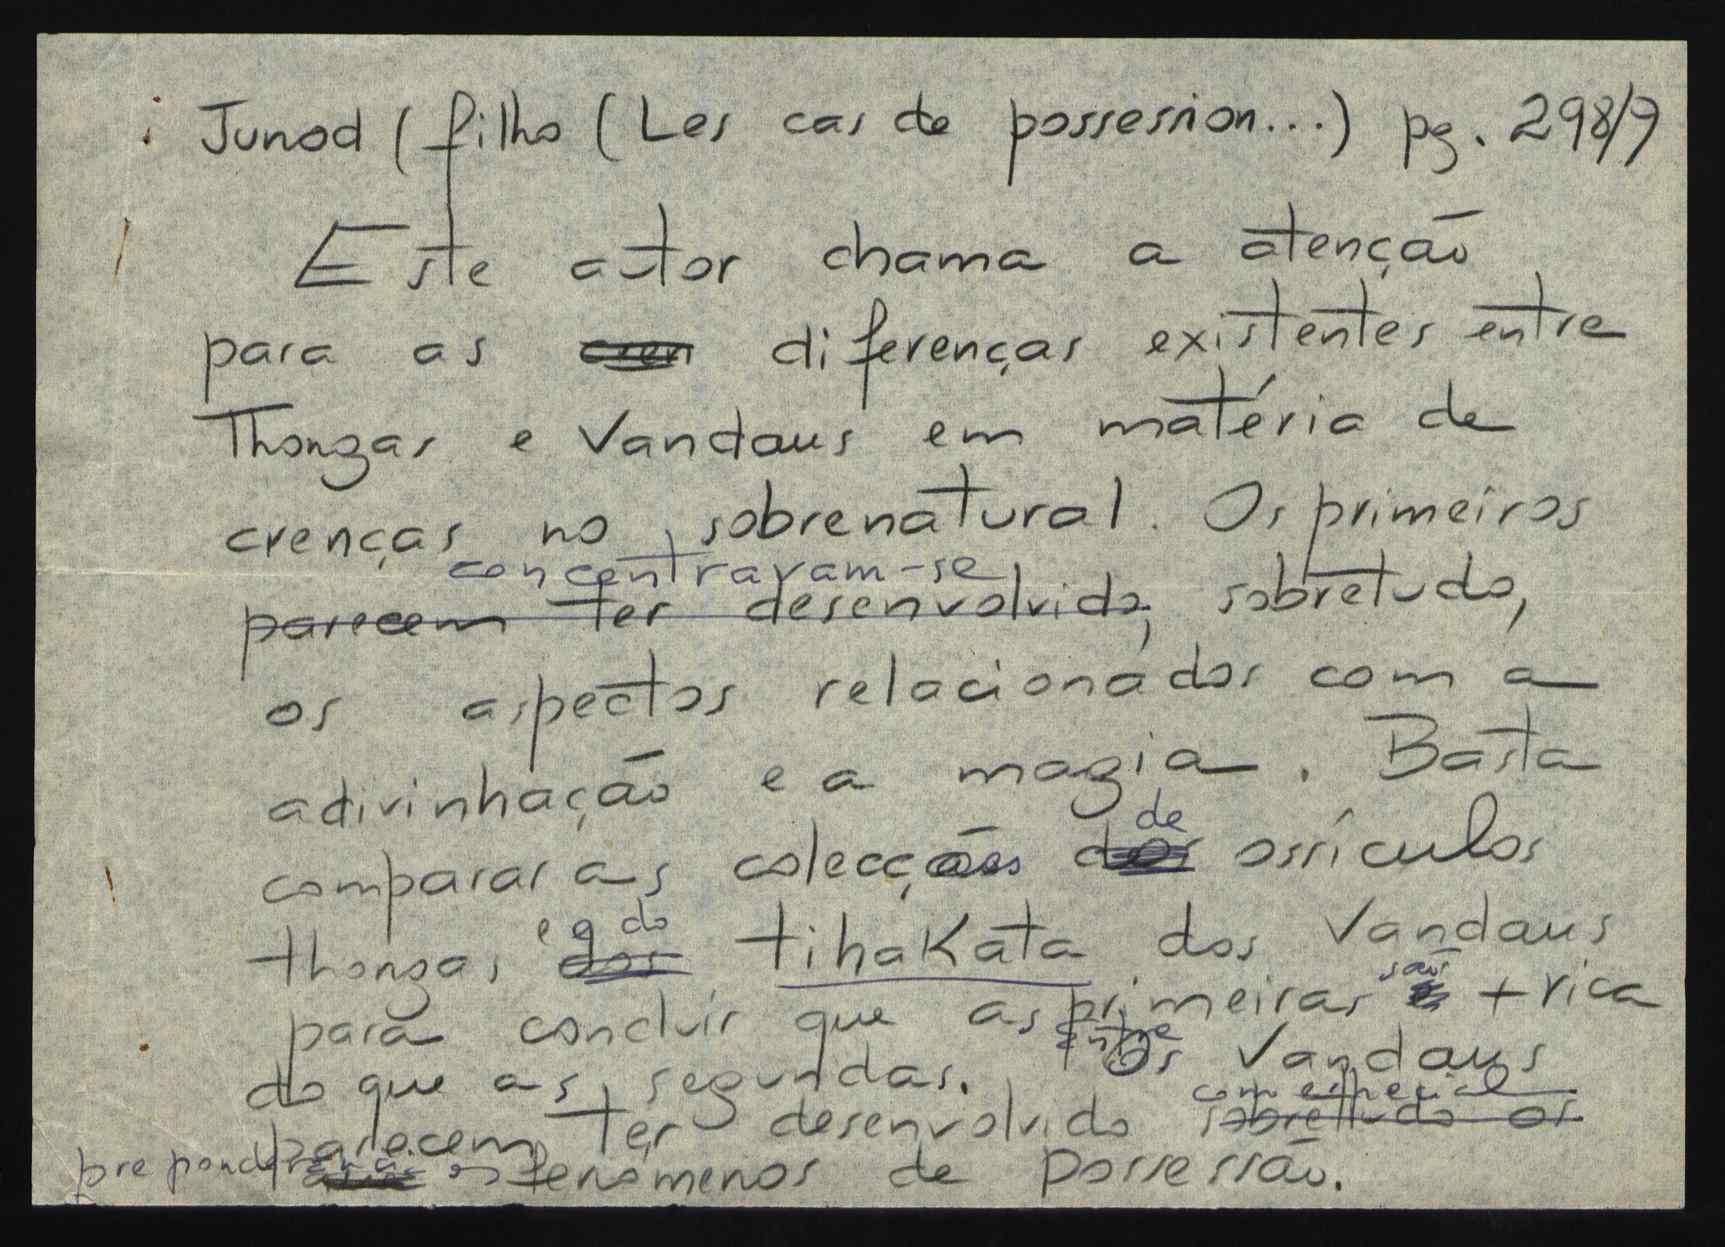 Junod (filho (Les cas de possession...) pg. 298/9
Este autor chama a atenção
para as cren diferenças existentes entre
Thongas e Vandaus em matéria de
crenças no sobrenatural. Os primeiros
concentravam-se
parecem ter desenvolvido, sobretudo,
os aspectos relacionados com a
adivinhação e a magia. Basta
de
comparar as colecções dos ossículos
e a do
thongas dos tihaKata dos Vandaus
são
para concluir que as primeiras + rica
entre
do que as segundas. Os Vandaus
com especial
parecem ter desenvolvido sobretudo os
preponderância os fenómenos de possessão.